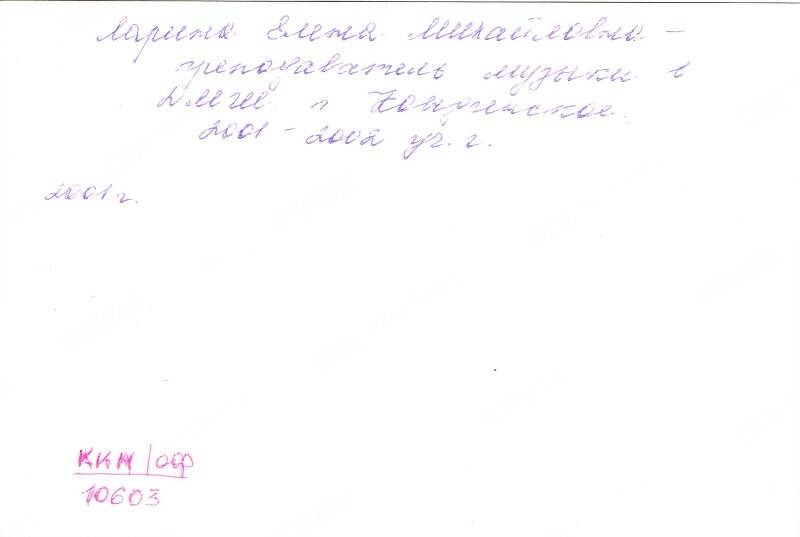 Ларина Елена Михайловна –
преподаватель музыки в
ДМШ п Кондинское.
2001 – 2002 уч. г.
2001 г.
ККМ/оф
10603